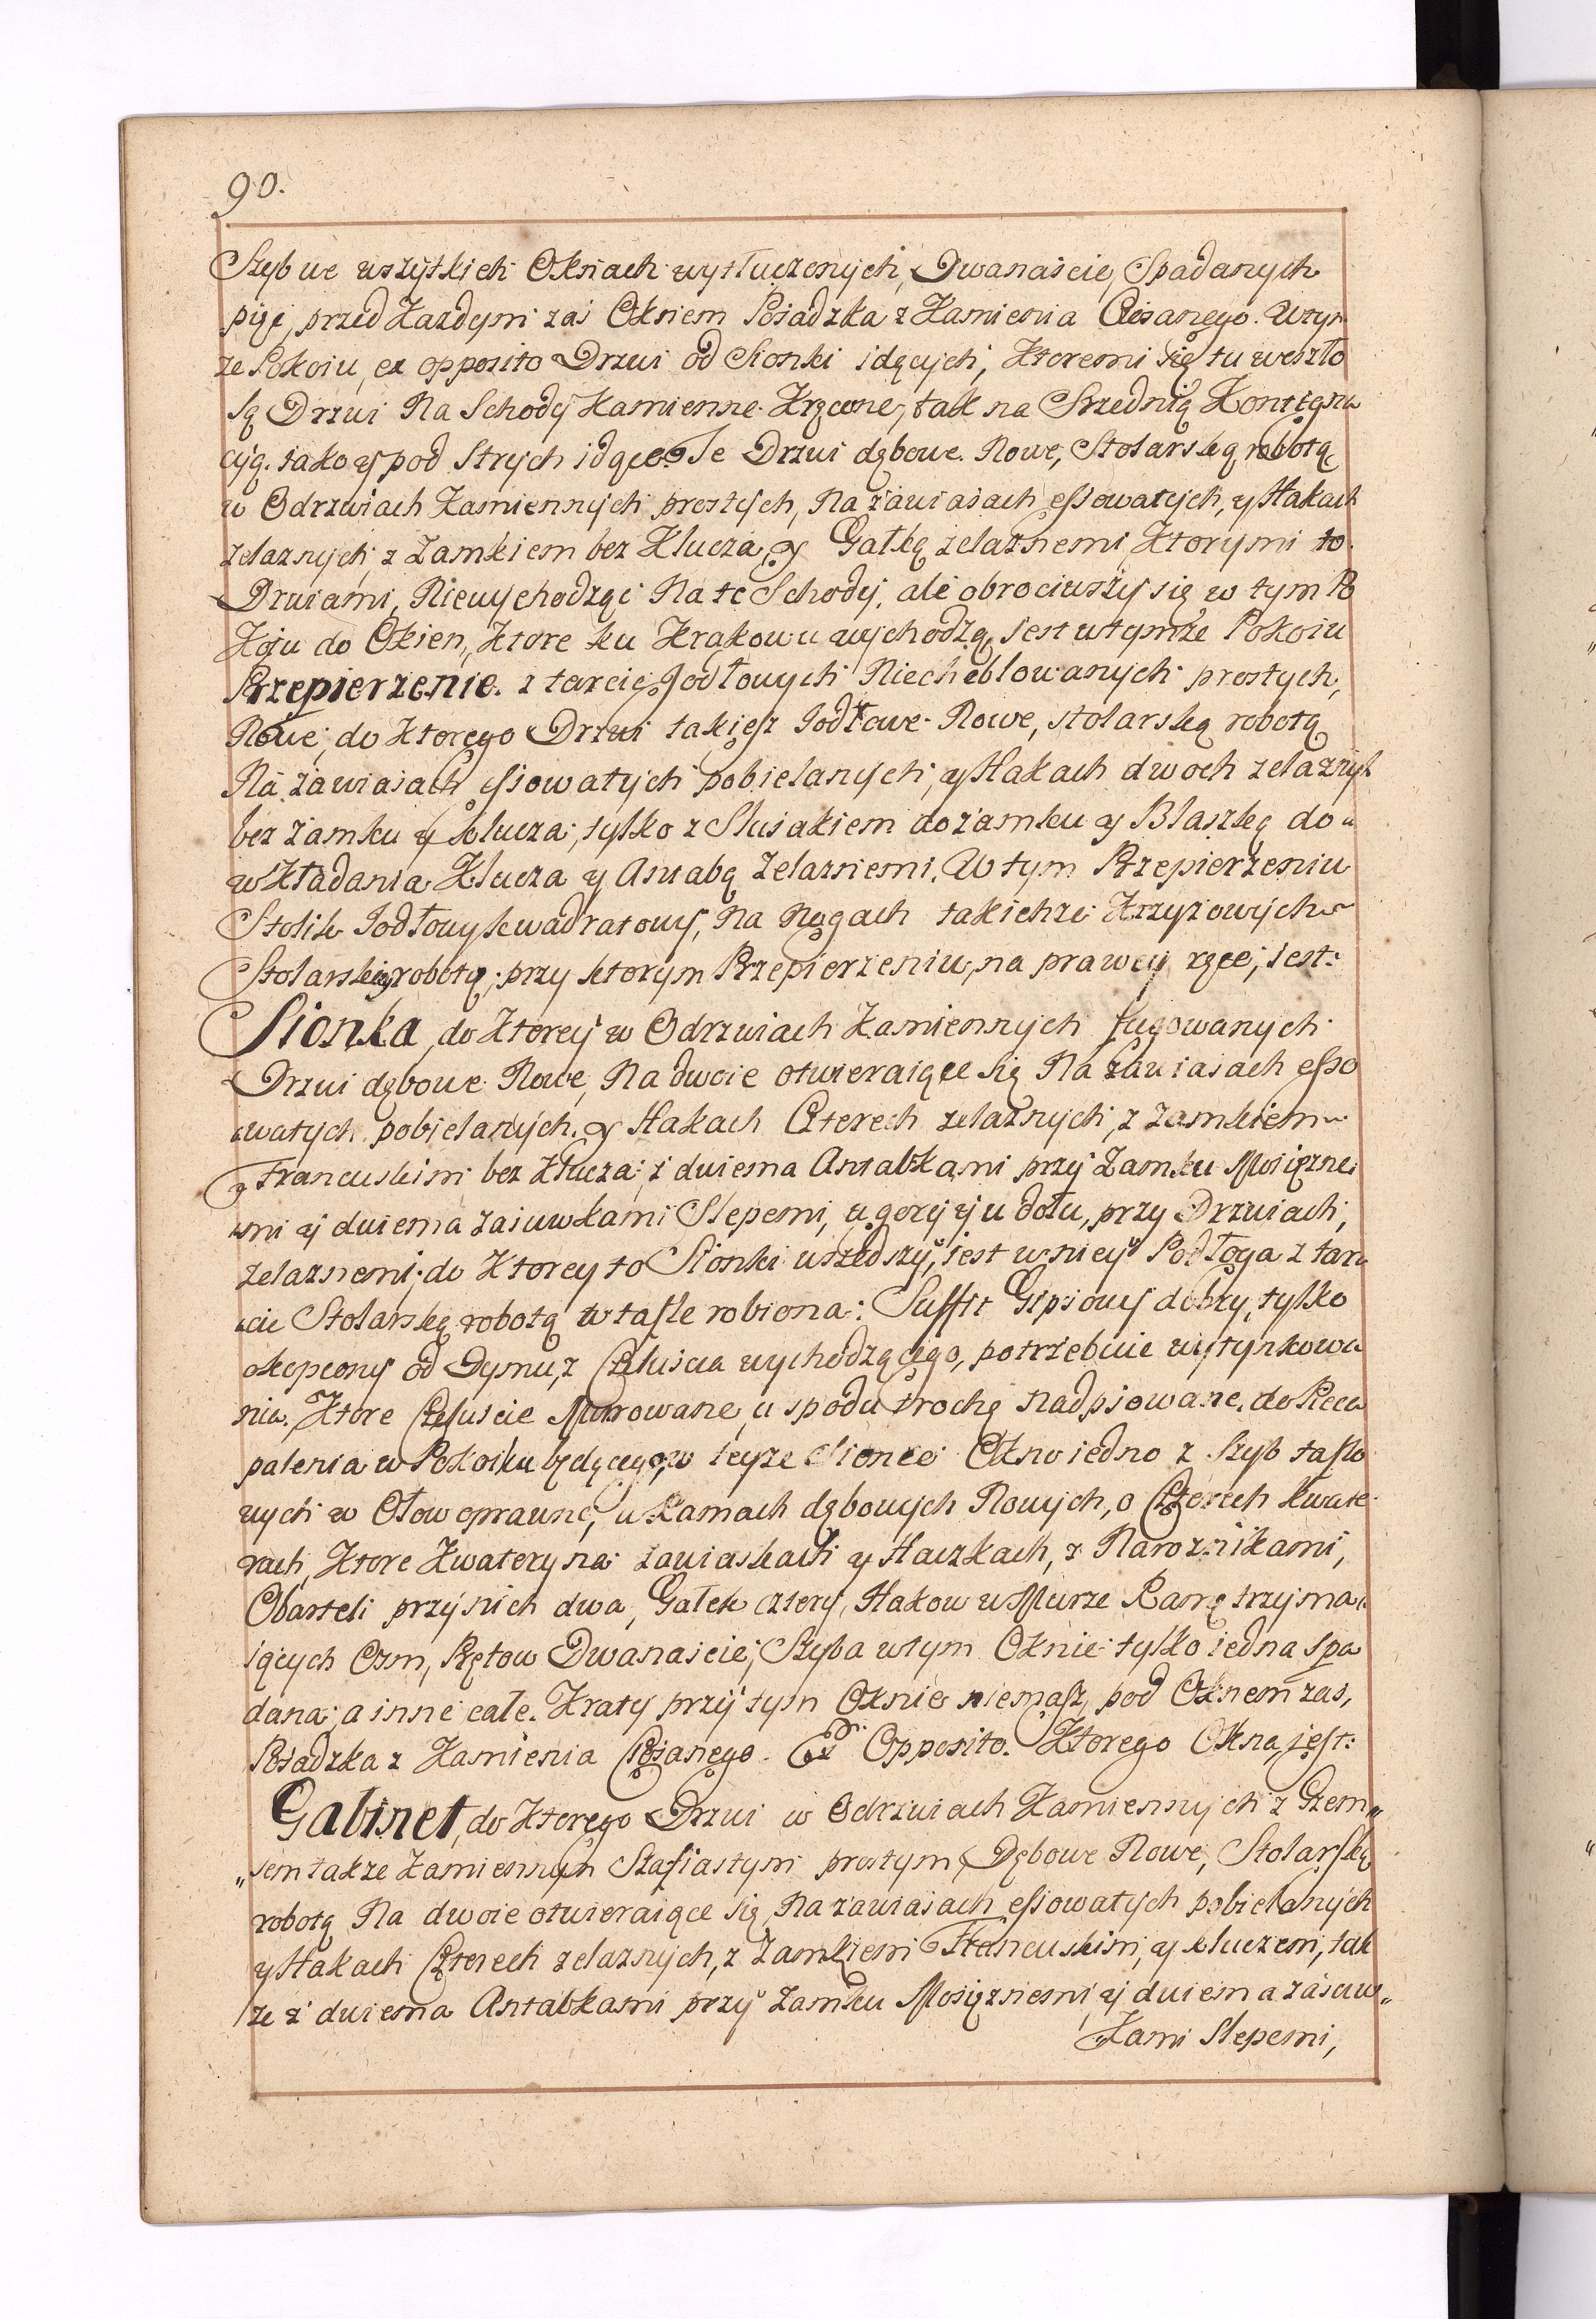 90.
Szyb we wszytkich Oknach wytłuczonych, Dwanaście, Spadanych
pięć, przed Każdym zaś Oknem Posadzka z Kamienia Ciosanego. W tym
że Pokoiu, ex opposito Drzwi od Sionki idących, Ktoremi się tu weszło
są Drzwi Na Schody Kamienne Kręcone, tak na Srzednią Kontigna
cyą. iako y pod Strych idące. Te Drzwi dębowe Nowe, Stolarską robotą
w Odrzwiach Kamiennych prostych, Na zawiasach essowatych, y Hakach
żelaznych, z Zamkiem bez Klucza, y Gałką żelaznemi, Ktorymi to
Drwiami, Niewychodząc Na te Schody, ale obrociwszy się w tym Po
Koju do Okien, Ktore ku Krakowu wychodzą, jest w tymże Pokoiu
Przepierzenie z tarcic Jodłowych Niecheblowanych prostych,
Nowe, do Ktorego Drzwi takież Jodłowe Nowe, stolarską robotą
Na zawiasach essowatych pobielanych, y Hakach dwoch żelaznych
bez Zamku y klucza, tylko z Slusakiem do zamku y Blaszką do
wKładania Klucza y Antabą Żelaznemi. W tym Przepierzeniu
Stolik Jodłowy kwadratowy, Na Nogach takichże Krzyżowych
Stolarską robotą; przy ktorym Przepierzeniu, na prawey ręce, iest:
Sionka, do Ktorey w Odrzwiach Kamiennych fugowanych
Drzwi dębowe Nowe, Na dwoie otwieraiące się Na zawiasach esso
watych pobielanych, y Hakach Czterech żelaznych, z zamkiem
Francuskim bez Klucza, z dwiema Antabkami przy Zamku Mosiężne
mi y dwiema zasuwkami Slepemi, u gory y u dołu, przy Drzwiach,
żelaznemi; do Ktorey to Sionki wszedszy, iest w niey Podłoga z tar
cic Stolarską robotą w tafle robiona: Suffit Gipsowy dobry, tylko
okopcony od Dymu, z Czeluscia wychodzącego, potrzebuie wytynkowa
nia. Ktore Czeluscie Murowane, u spodu trochę nadpsowane, do Pieca
palenia w Pokoiku będącego, w teyże Sionce Okno iedno z Szyb taflo
wych w Ołow oprawne, w Ramach dębowych Nowych, o Czterech kwate
rach, Ktore Kwatery na zawiaskach y Haczkach, z Narożnikami,
Obarteli przy nich dwa, Gałek cztery, Hakow w Murze Ramę trzyma
iących Osm, Prętow Dwanaście, Szyba w tym Oknie tylko iedna spa
dana, a inne całe. Kraty przy tym Oknie niemasz, pod Oknem zaś,
Posadzka z Kamienia Ciosanego. Ex Opposito Ktorego Okna jest:
Gabinet, do Ktorego Drzwi w Odrzwiach Kamiennych z Gzem„
„sem także Kamiennym Szafiastym prostym, Dębowe Nowe, Stolarską
robotą Na dwoie otwieraiące się, Na zawiasach essowatych pobielanych
y Hakach Czterech żelaznych, z Zamkiem Francuskim, y kluczem, tak
że z dwiema Antabkami przy Zamku Mosiężnemi, y dwiema zasuw„
Kami Slepemi,